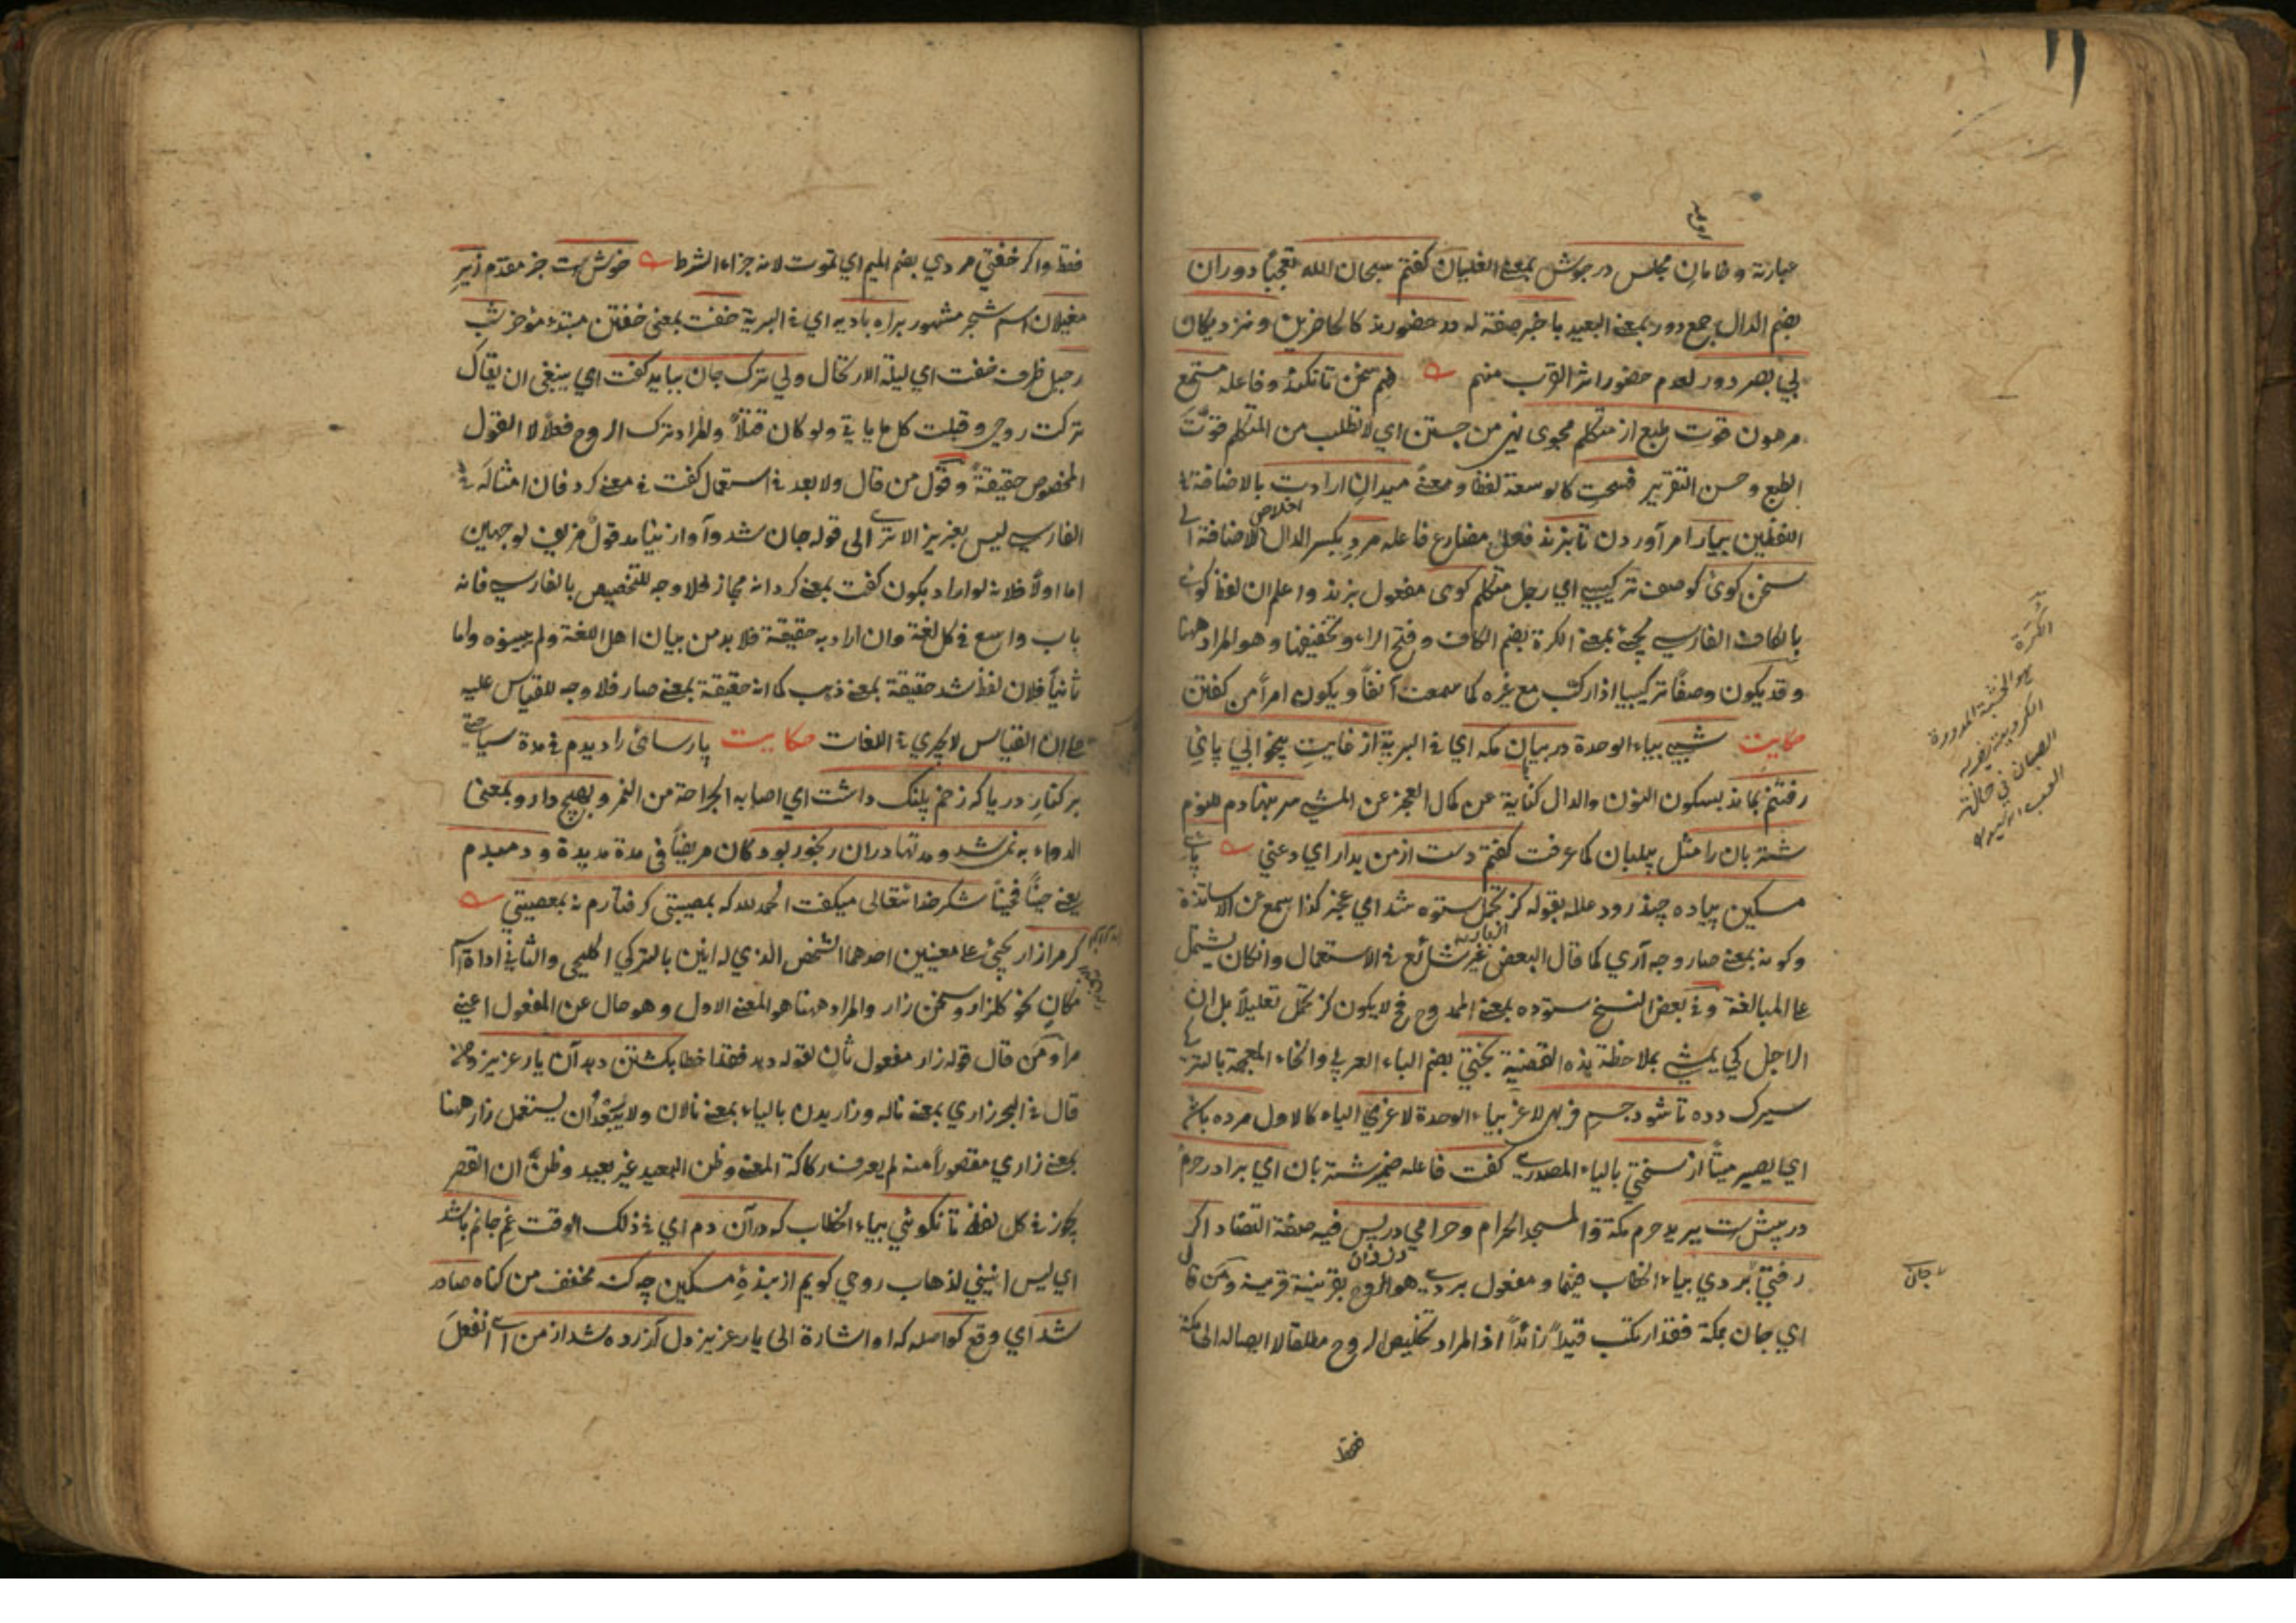 عبارته وخامان مجلس در جوش بمعنى الغليان كفتم سبحان الله تعجباً دوران
بضم الدال جمع دور بمعنى البعيد باخبر صفة له در حضورند كالحاضرين ونزديكان
بي بصر دور لعدم حضور اثر القرب منهم فهم سخن تا نكند وفاعله مستمع
مرهون قوت طبع از متكلم مجوى نهى من جستن اي لا تطلب من المتكلم قوت
الطبع وحسن التقرير فسحت كالوسعة لفظا ومعنى ميدان ارادت بالاضافة
اخلاص
اللفظين بيار امر آوردن تا بزند فعل مضارع فاعله مرد بكسر الدال للاضافة الى
سخن كوى كوصف تركيبي اي رجل متكلم كوى مفعول بزند واعلم ان لفظ كوى
بالكاف الفارسي يجئ بمعنى الكرة بضم الكاف وفتح الراء وتخفيفها وهو المراد ههنا
وقد يكون وصفاً تركيبيا اذا ركب مع غيره كما سمعت آنفاً ويكون امراً من كفتن
حكايت شبي بياء الوحدة در بيابان مكه اي في البرية از غايت بيخوابي پاى
رفتنم نماند بسكون النون والدال كناية عن كمال العجز عن المشي سر بنهادم للنوم
شتربان را مثل پيلبان كما عرفت كفتم دست از من بدار اي دعني پاى
مسكين پياده چند رود علله بقوله كز تحمل ستوه شد اي عجز كذا سمع عن الاساتذة
وكونه بمعنى صار وجه آري كما قال البعض غير شائع في الاستعمال وان كان يشتمل
على المبالغة وفي بعض النسخ ستوده بمعنى الممدوح فح لا يكون كز تحمل تعليلاً بل ان
الراجل كي يمشي بملاحظة هذه القضية بختي بضم الباء العربي والخاء المعجمة بالتركي
سيرك دوه تا شود جسم فربهى لاغر بياء الوحدة لاغري الياء كالاول مرده باشد
اي يصير ميتاً از سختي بالياء المصدري كفت فاعله ضمير شتربان اي برادر حرم
در پيش ست يريد حرم مكة والمسجد الحرام وحرامي در پس فيه صنعة التضاد اكر
دزدان
رفتي بردي بياء الخطاب فيهما ومفعول بردي هو الروح بقرينة قرينه ومن قال
اي جان بمكة فقد ارتكب قيداً زائداً اذ المراد تخليص الروح مطلقا لا ايصاله الى مكة
فقط
الكرة
هو الخشبة المدورة
الصبيان في حالة
جان
فقط واكر خفتي مردي بضم الميم اي تموت لانه جزاء الشرط خوش ست خبر مقدم زير
مغيلان اسم شجر مشهور براه باديه اي في البرية خفت بمعنى خفتن مبتدء مؤخر شب
رحيل ظرف خفت اي ليلة الارتحال ولي ترك جان ببايد كفت اي ينبغي ان يقال
تركت روحي وقبلت كل ما يأتي ولو كان قتلاً والمراد ترك الروح فعلا لا القول
المخصوص حقيقة وقول من قال ولا بعد في استعمال كفت في معنى كرد فان امثاله في
الفارسي ليس بعزيز الا ترى الى قوله جان شد وآواز نيامد قول مزيف لوجهين
اما اولاً فلانه لو اراد بكون كفت بمعنى كرد انه مجاز فلا وجه للتخصيص بالفارسي فانه
باب واسع في كل لغة وان اراد به حقيقة فلا بد من بيان اهل اللغة ولم يبينوه واما
ثانياً فلان لفظ شد حقيقة بمعنى ذهب كما انه حقيقة بمعنى صار فلا وجه للقياس عليه
على ان القياس لا يجري في اللغات حكايت پارسائى را ديدم في مدة سياحتي
بر كنار دريا كه زخم پلنك داشت اي اصابه الجراحة من النمر وبهيچ دارو بمعنى
الدواء به نمى شد ومدتها دران رنجور بود كان مريضاً فى مدة مديدة ودمبدم
يعني حيناً فحيناً شكر خدا تعالى ميكفت الحمد لله كه بمصيبتى كرفتارم نه بمعصيتي
كر مرا زار يجئ على معنيين احدهما الشخص الذي له انين بالتركي اكليجي والثاني اداة اسم
مكان نحو كلزار وسخن زار والمراد ههنا هو المعنى الاول وهو حال عن المفعول اعني
مرا ومن قال قوله زار مفعول ثان لقوله دهد فقد اخطا بكشتن دهد آن يار عزيز
قال في البحر زاري بمعنى ناله وزاريدن بالياء بمعنى نالان ولا يبعد ان يستعمل زار ههنا
بمعنى زاري مقصوراً منه لم يعرف ركاكة المعنى وظن البعيد غير بعيد وظن ان القصر
يجوز في كل لفظ تا نكوئي بياء الخطاب كه در آن دم اي في ذلك الوقت غم جانم باشد
اي ليس انيني لذهاب روحي كويم از بنده مسكين چه كنه مخفف من كناه صادر
شد اي وقع كو اصله كه او اشارة الى يار عزيز دل آزرده شد از من اي انفعل